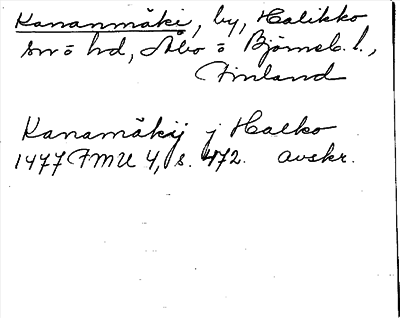 Kananmäki, by, Halikko
sn o hd, Åbo o Björneb. l.,
Finland
Kanamäkij j Halko
1477 FMU 4, s. 472. avskr.